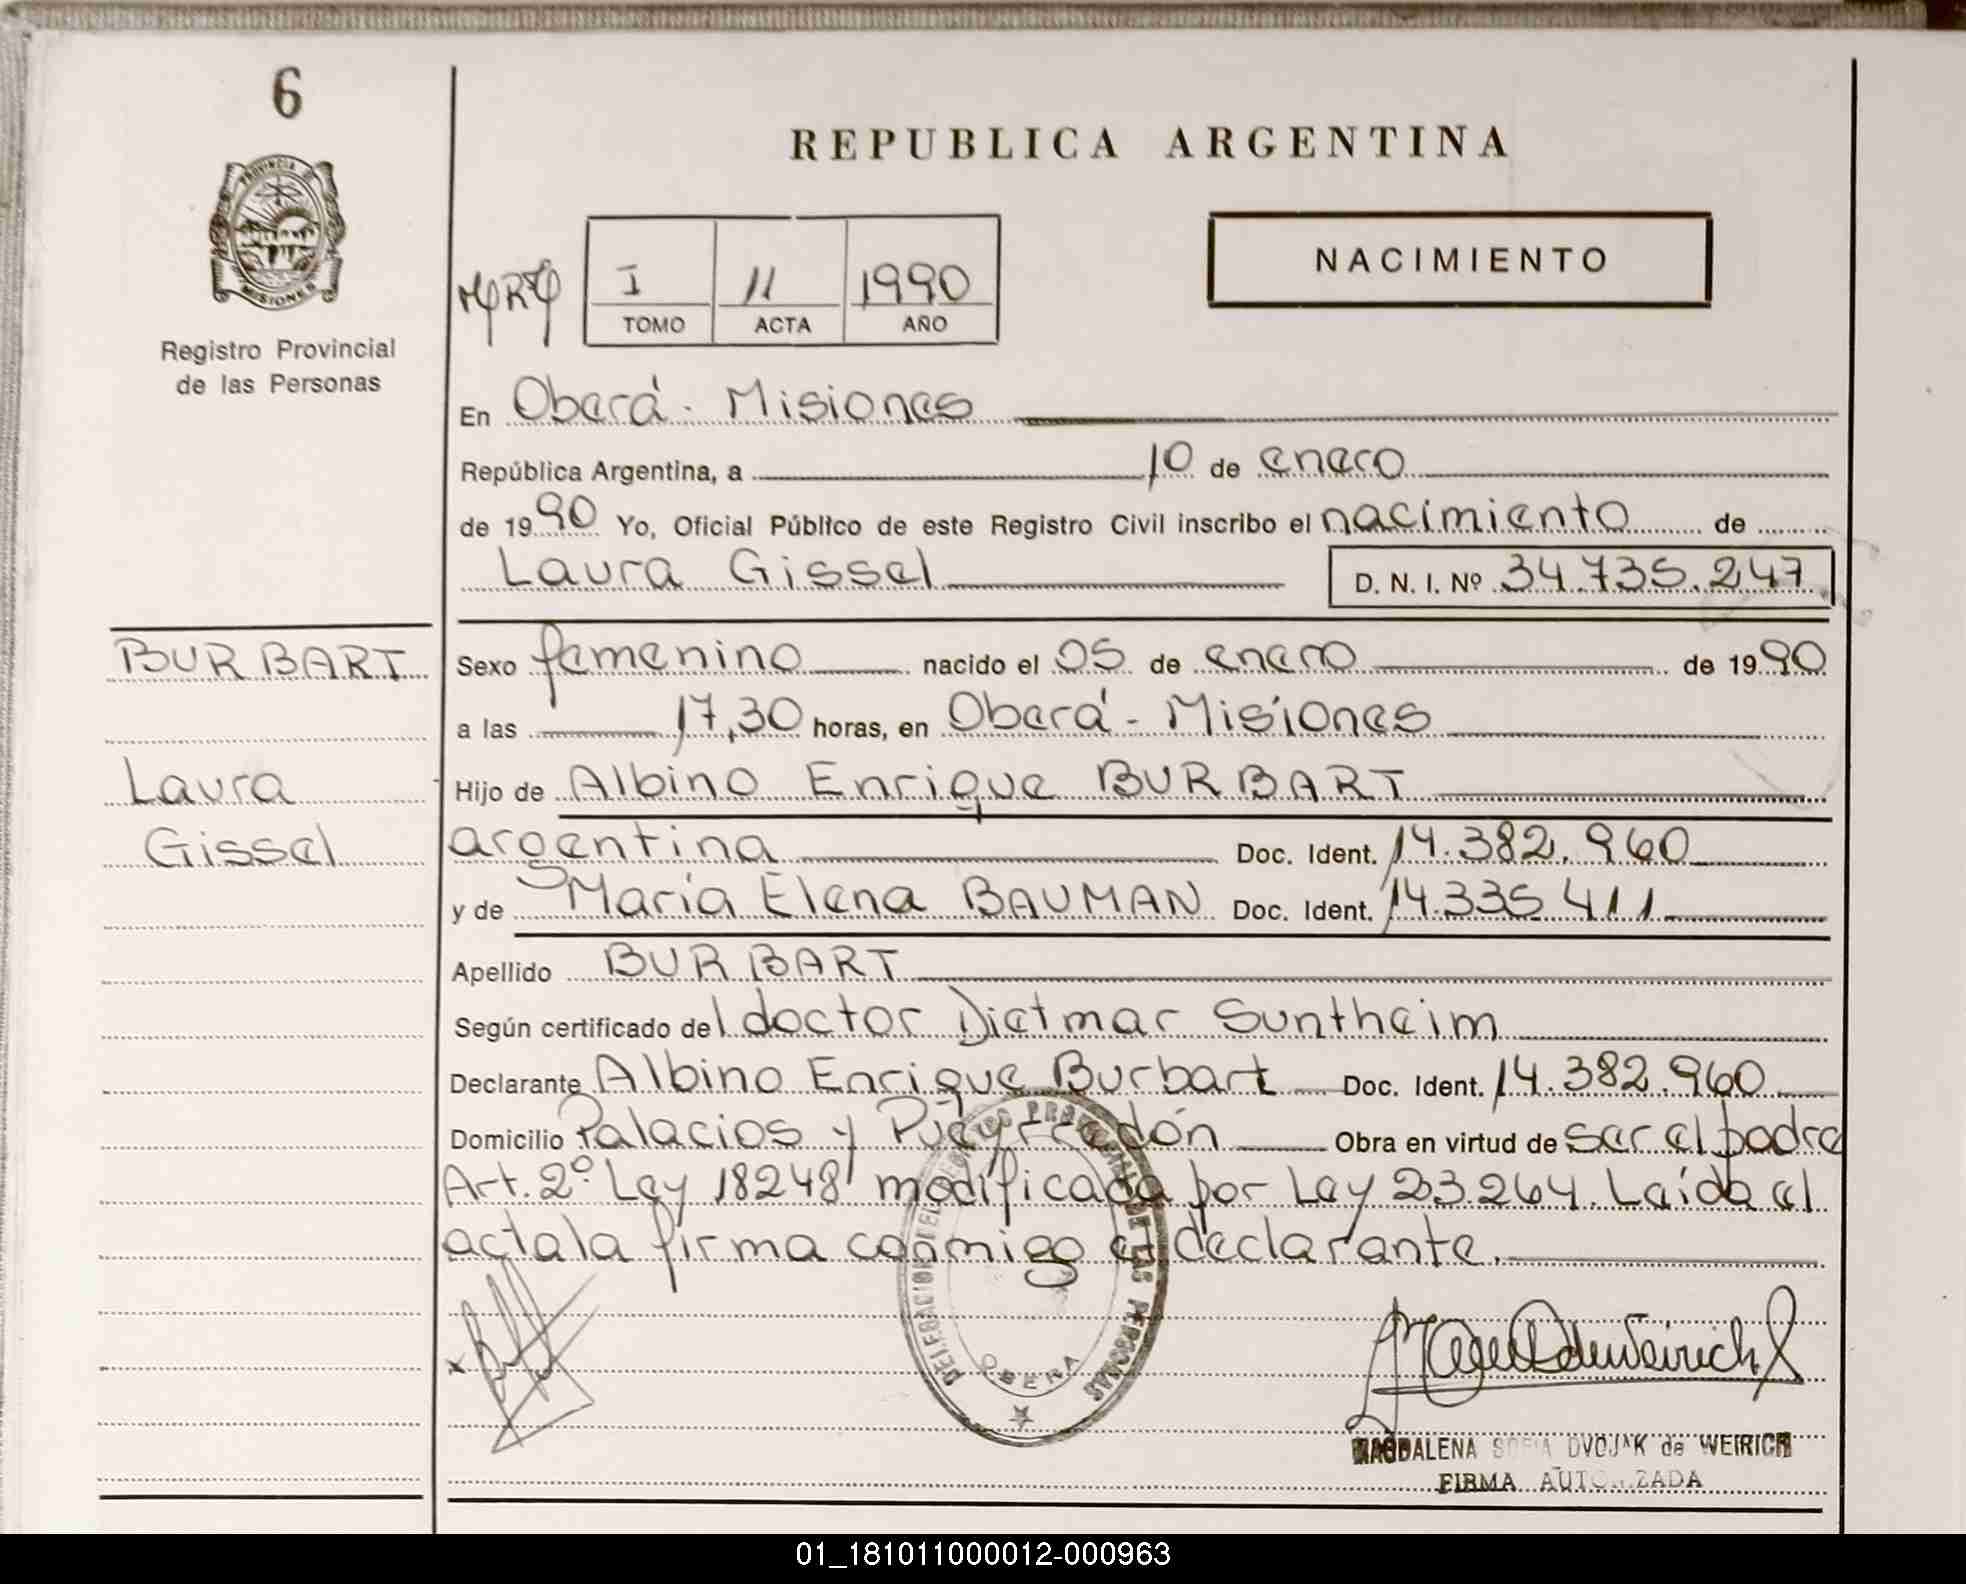 6
PROVINCIA DE
MISIONES
Registro Provincial
de las Personas
REPUBLICA ARGENTINA
NACIMIENTO
I 11 1990
TOMO ACTA AÑO
En Oberá - Misiones
República Argentina, a 10 de enero
de 1990 Yo, Oficial Público de este Registro Civil inscribo el nacimiento de
Laura Gissel D. N. I. Nº 34.735.247
BURBART
Laura
Gissel
Sexo femenino nacido el 05 de enero de 1990
a las 17,30 horas, en Oberá - Misiones
Hijo de Albino Enrique BURBART
argentina Doc. Ident. 14.382.960
y de María Elena BAUMAN Doc. Ident. 14.335.411
Apellido BURBART
Según certificado del doctor Dietmar Suntheim
Declarante Albino Enrique Burbart Doc. Ident. 14.382.960
Domicilio Palacios y Pueyrredón Obra en virtud de ser el padre
Art. 2º Ley 18248 modificada por Ley 23.264. Leída el
acta la firma conmigo el declarante.
DELEGACION DEL REGISTRO PROVINCIAL DE LAS PERSONAS
OBERA
MAGDALENA SOFIA DVOJAK de WEIRICH
FIRMA AUTORIZADA
01_181011000012-000963